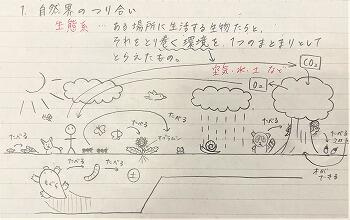 1. 自然界のつり合い
生態系 … ある場所に生活する生物たちと、
それをとり巻く環境を、1つのまとまりとして
とらえたもの。
空気・水・土 など
CO₂
O₂
たべる
たべる
たべる
たべる
たべる
たべる
もぐら
土